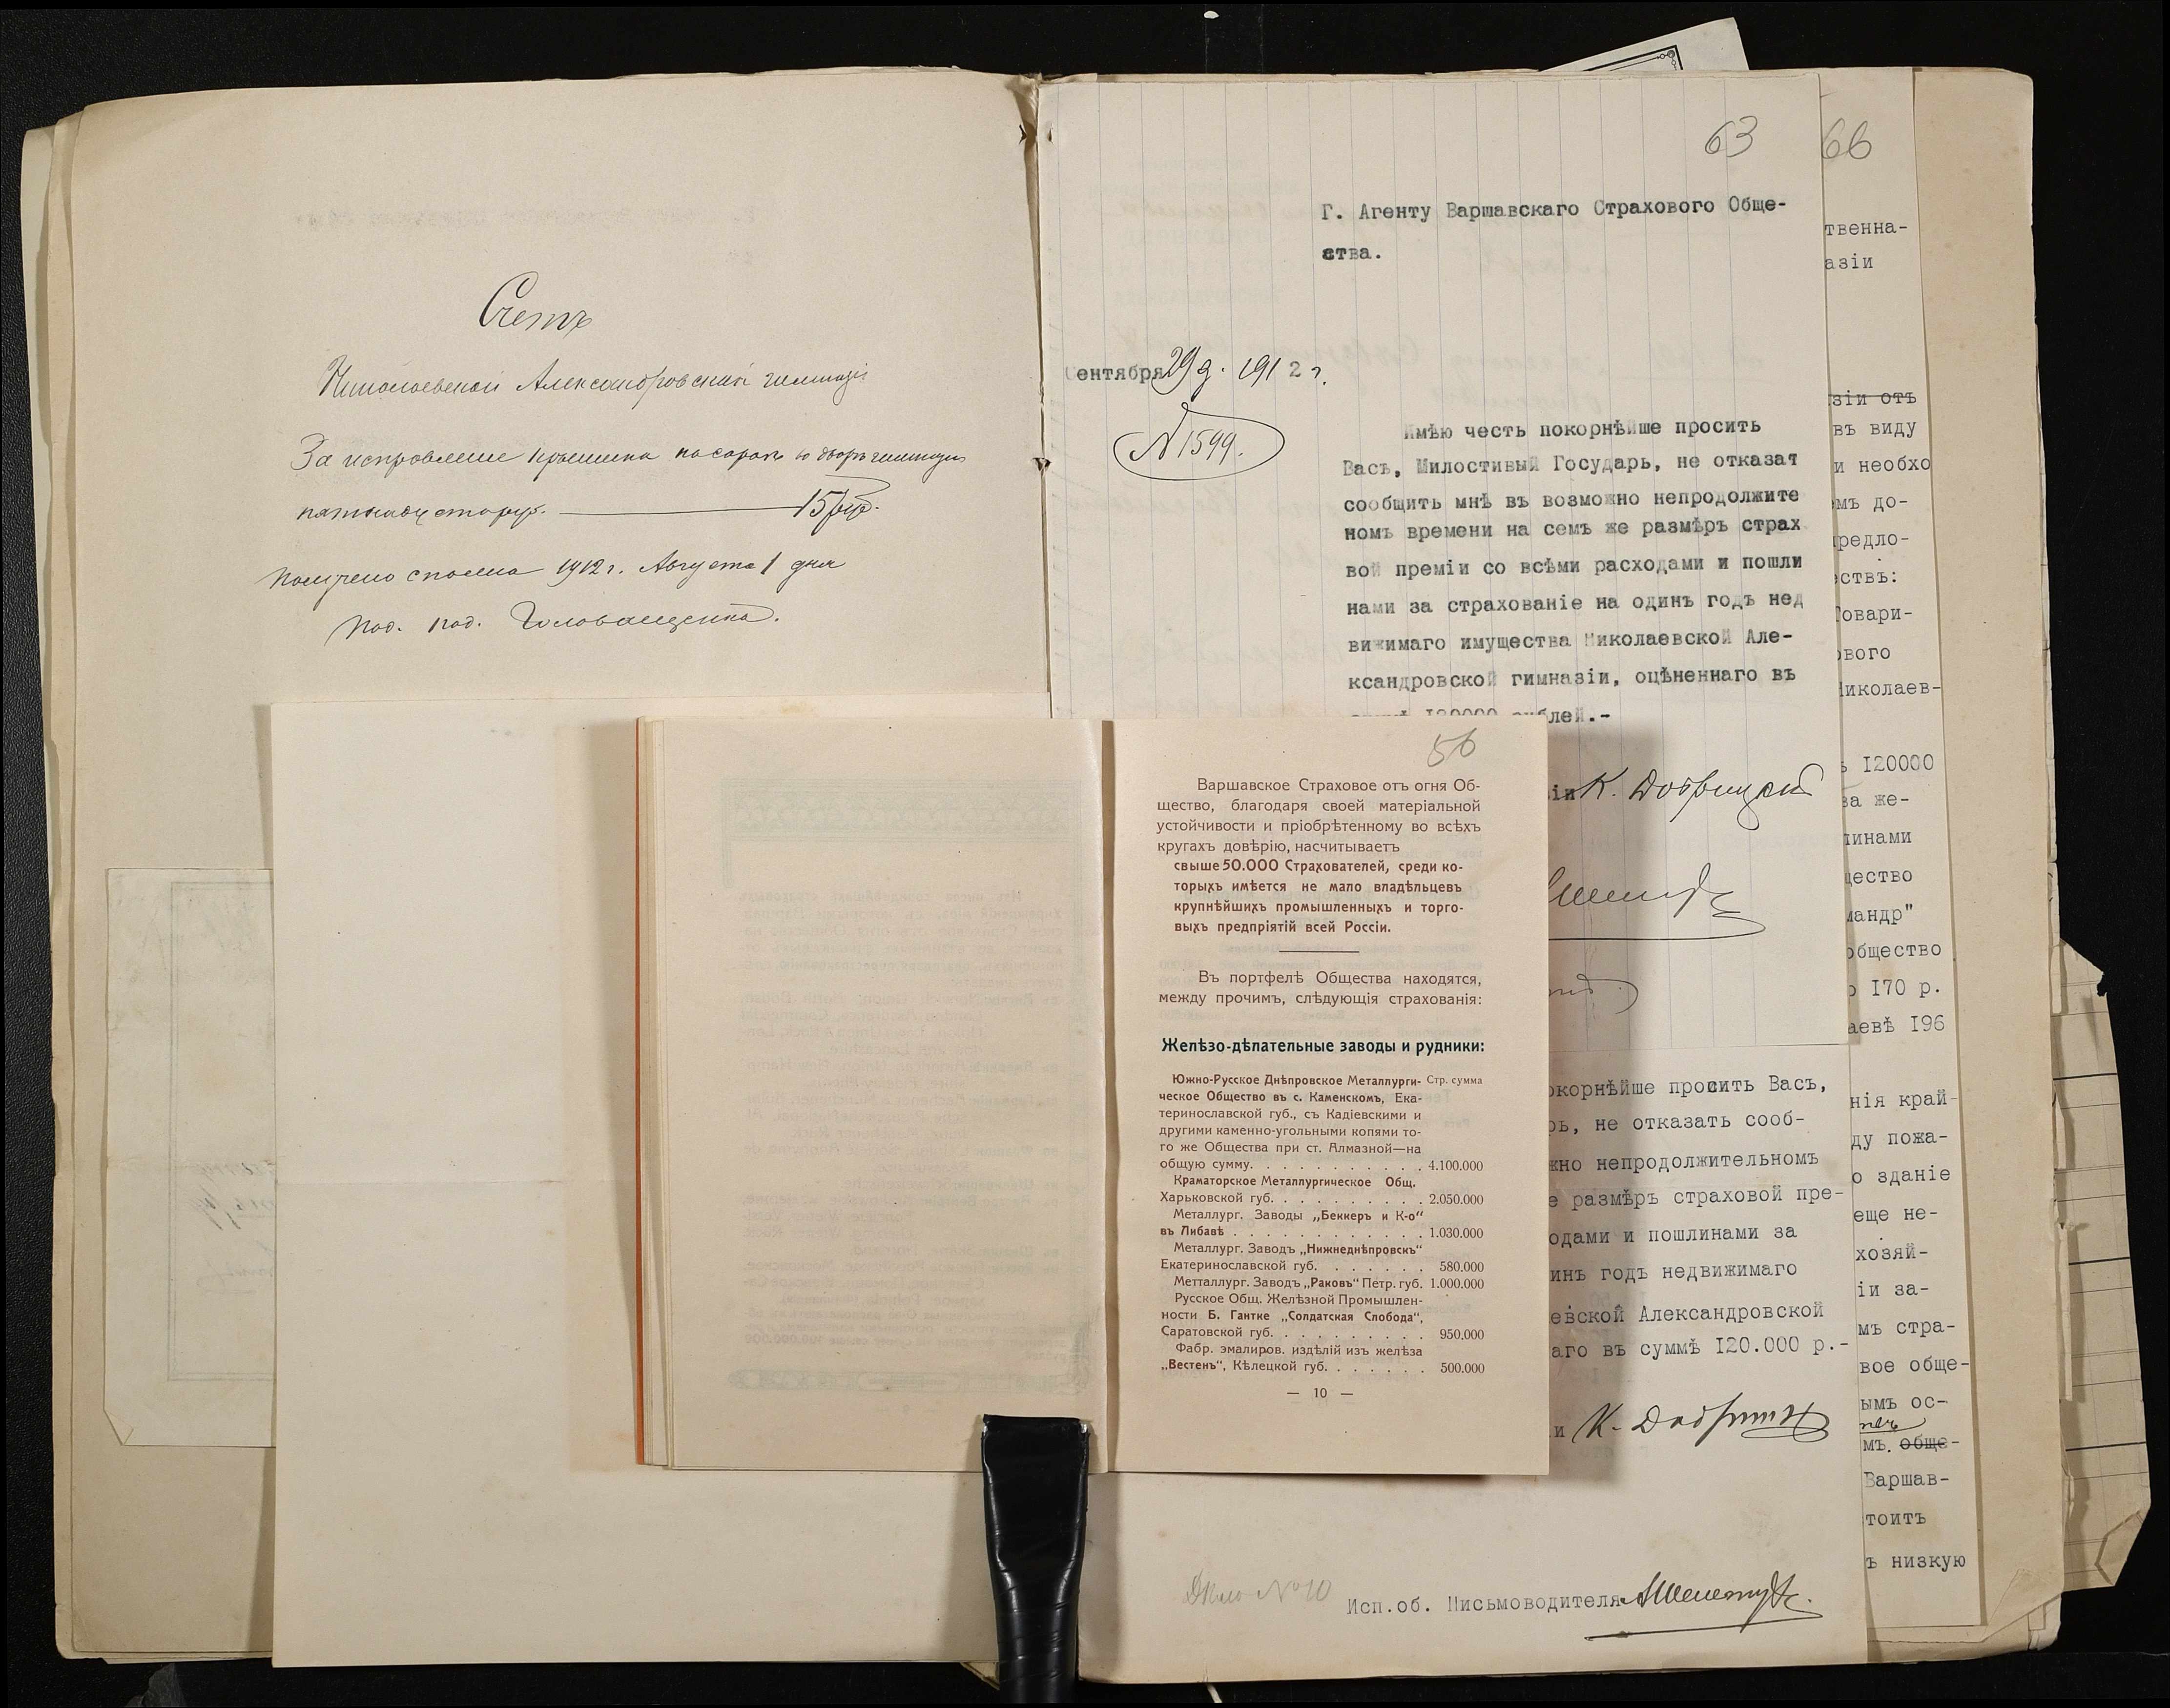 Счетъ
Николаевской Александровской гимназіи
За исправление крышика на сараѣ во дворѣ гимназіи
пятнадцать руб. 15 руб.
Получено сполна 1912 г. Августа 1 дня
под. под.
63
Г. Агенту Варшавскаго Страхового Обще-
ства.
ентября 29 д. 1912 г.
N 1599.
Имѣю честь покорнѣйше просить
Васъ, Милостивый Государь, не отказат
сообщить мнѣ въ возможно непродолжите
номъ времени на семъ же размѣръ страх
вой преміи со всѣми расходами и пошли
нами за страхованіе на одинъ годъ нед
вижимаго имущества Николаевской Але-
ксандровской гимназіи, оцѣненнаго въ
120000 рублей.-
іи К.
56
Варшавское Страховое отъ огня Об-
щество, благодаря своей матеріальной
устойчивости и пріобрѣтенному во всѣхъ
кругахъ довѣрію, насчитываетъ
свыше 50.000 Страхователей, среди ко-
торыхъ имѣется не мало владѣльцевъ
крупнѣйшихъ промышленныхъ и торго-
выхъ предпріятій всей Россіи.
Въ портфелѣ Общества находятся,
между прочимъ, слѣдующія страхованія:
Желѣзо-дѣлательные заводы и рудники:
Южно-Русское Днѣпровское Металлурги- Стр. сумма
ческое Общество въ с. Каменскомъ, Ека-
теринославской губ., съ Кадіевскими и
другими каменно-угольными копями то-
го же Общества при ст. Алмазной—на
общую сумму. . . . . . . . . . . 4.100.000
Краматорское Металлургическое Общ.
Харьковской губ. . . . . . . . . . 2.050.000
Металлург. Заводы „Беккеръ и К-о“
въ Либавѣ . . . . . . . . . . . . 1.030.000
Металлург. Заводъ „Нижнеднѣпровскъ“
Екатеринославской губ. . . . . . . 580.000
Метталлург. Заводъ „Раковъ“ Петр. губ. 1.000.000
Русское Общ. Желѣзной Промышлен-
ности Б. Гантке „Солдатская Слобода“,
Саратовской губ. . . . . . . . . . 950.000
Фабр. эмалиров. издѣлій изъ желѣза
„Вестенъ“, Кѣлецкой губ. . . . . . 500.000
— 10 —
окорнѣйше просить Васъ,
рь, не отказать сооб-
жно непродолжительномъ
е размѣръ страховой пре-
одами и пошлинами за
инъ годъ недвижимаго
евской Александровской
аго въ суммѣ 120.000 р.-
и К.
Дѣло №10
Исп.об. Письмоводителя
66
твенна-
азіи
зіи отъ
въ виду
и необхо
мъ до-
предло-
ствъ:
Товари-
ового
Николаев-
ъ 120000
за же-
линами
щество
мандр"
общество
о 170 р.
аевѣ 196
нія край-
ду пожа-
о зданіе
еще не-
хозяй-
іи за-
мъ стра-
вое обще-
ымъ ос-
мъ. обще-
Варшав-
тоитъ
ъ низкую